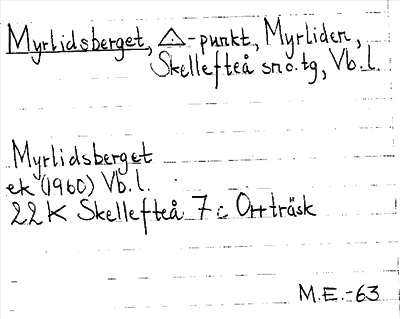 Myrlidsberget, △-punkt, Myrliden,
Skellefteå sno.tg, Vb.l.
Myrlidsberget
ek (1960) Vb.l.
22K Skellefteå 7c Orrträsk
M.E.-63